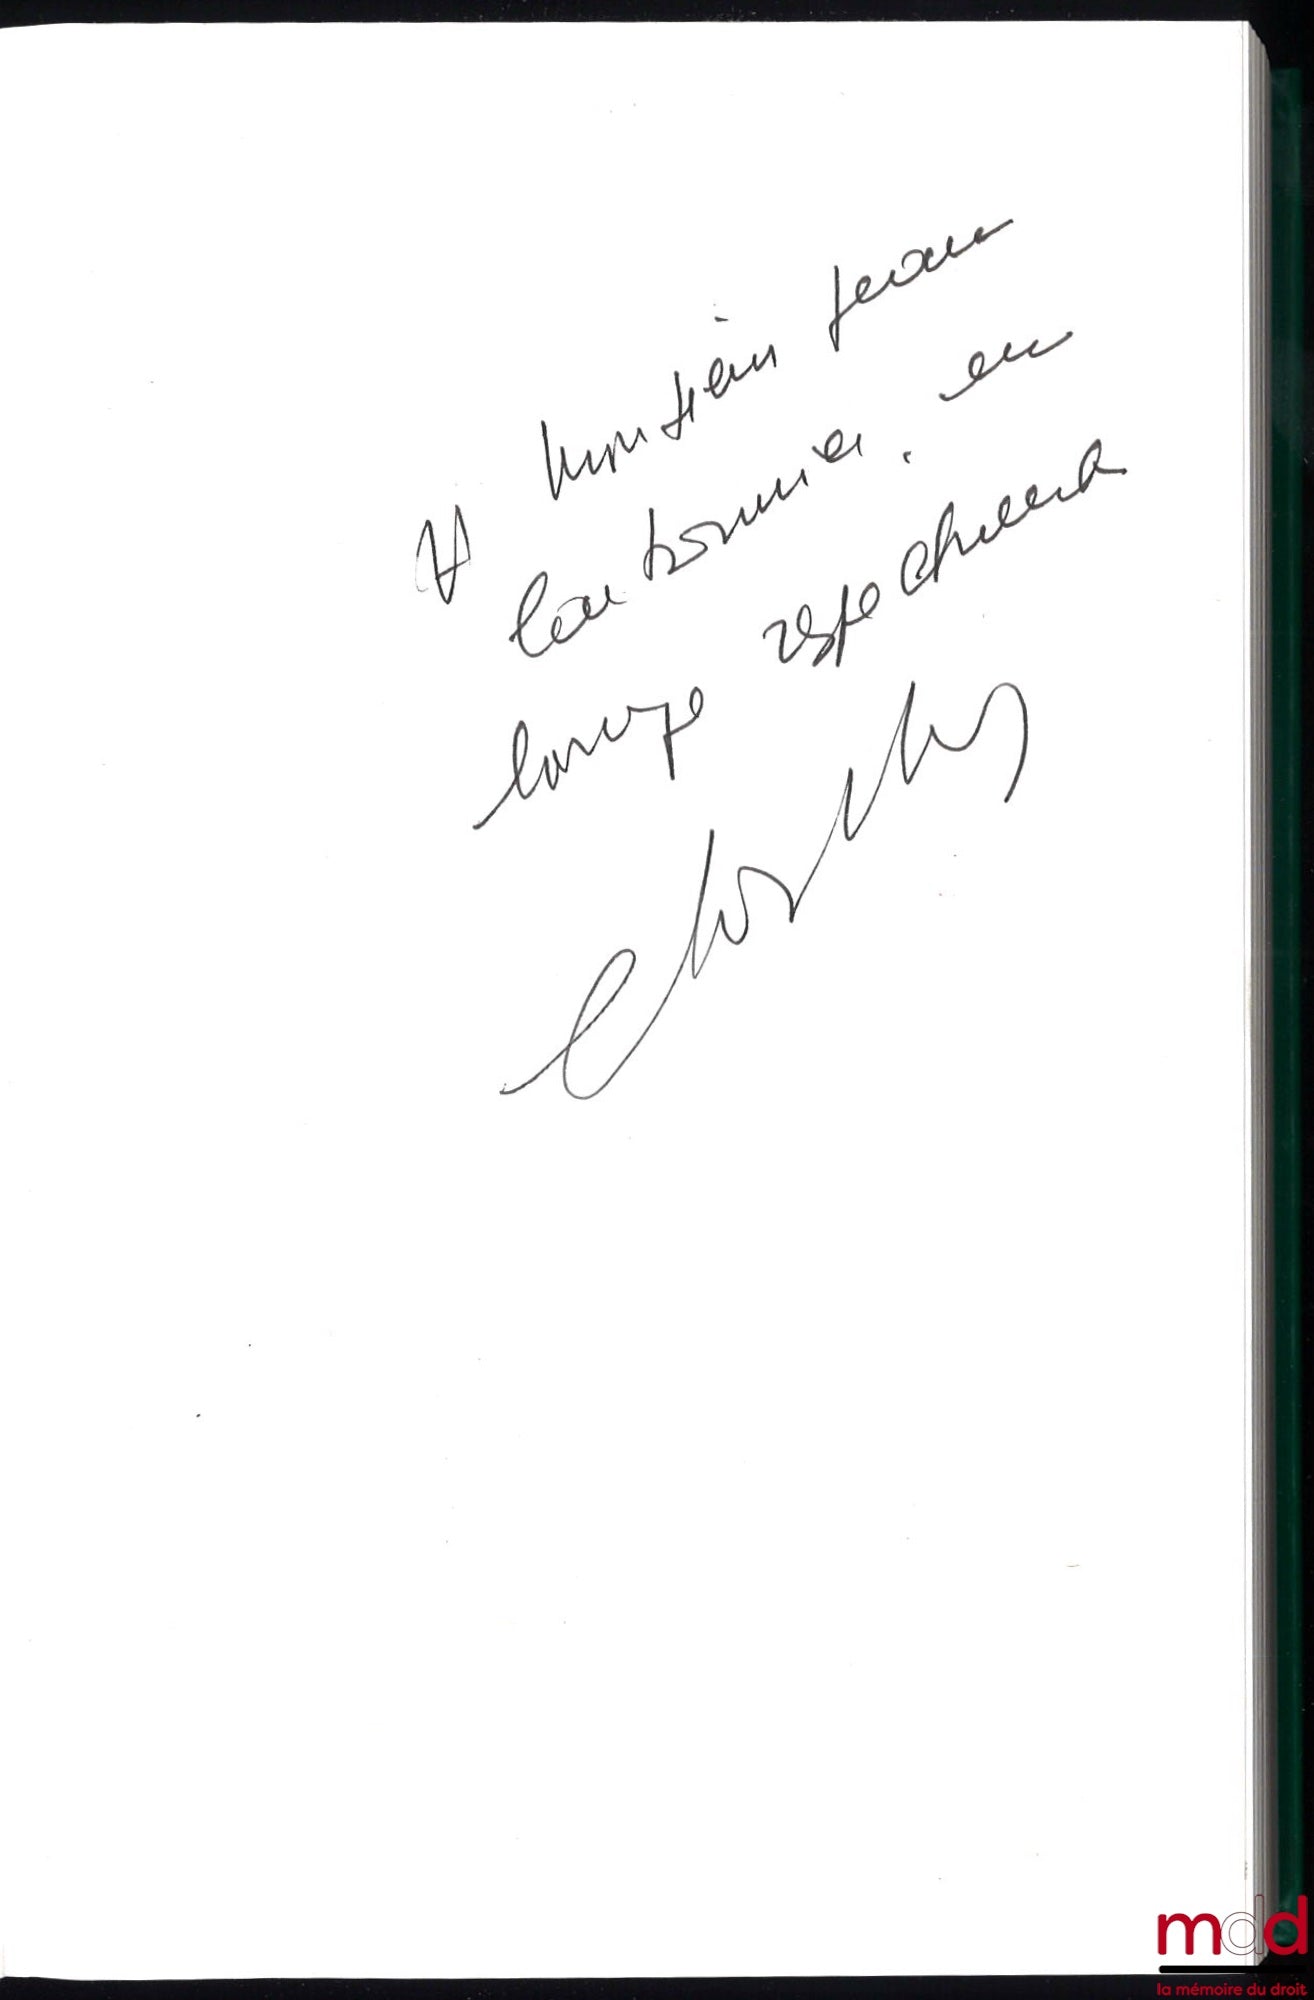 A Monsieur Jean
Carbonnier. en
hommage respectueux
mdd
la mémoire du droit